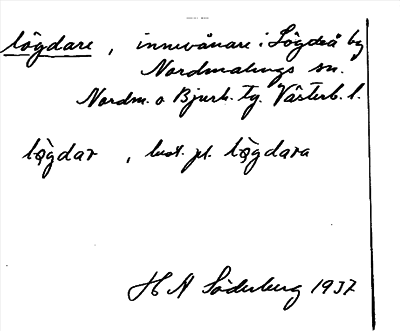 lögdare, innevånare i Lögdeå by
Nordmalings sn.
Nordm. o Bjurh. tg. Västerb. l.
lögdar, best. pl. lögdara
H A Söderberg 1937